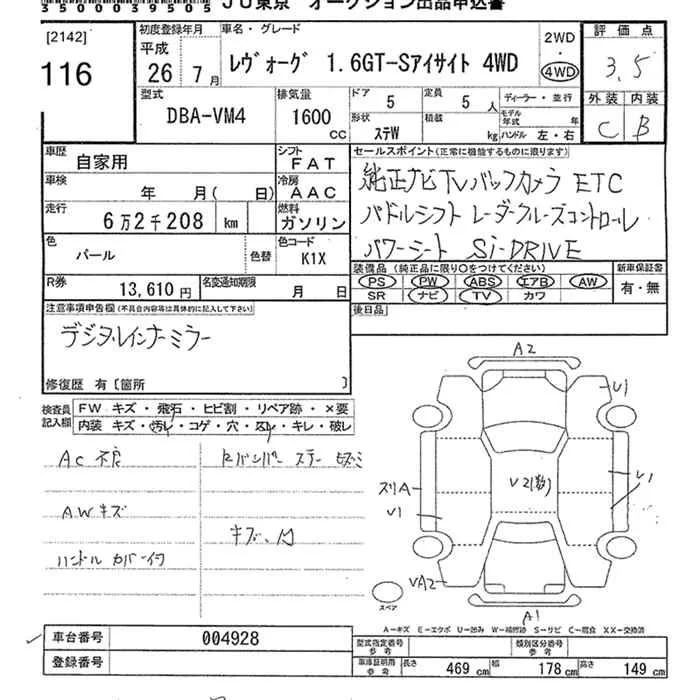 35000039505 JU東京 オークション出品申込書
[2142]
116
初度登録年月
平成
26年 7月
車名・グレード
レヴォーグ 1.6GT-Sアイサイト 4WD
2WD
・
4WD
評価点
3.5
外装 内装
C B
型式
DBA-VM4
排気量
1600
CC
ドア 5
定員 5人
形状 ステW
積載 kg
ディーラー・並行
モデル年式 年
ハンドル 左・右
車歴
自家用
シフト
FAT
車検
年 月( 日)
冷房
AAC
走行
6万2千208 km
燃料
ガソリン
色
パール
色替
色コード
K1X
R券
13,610円
名変通知期限
月 日
セールスポイント(正常に機能するものに限ります)
純正ナビTVバックカメラ ETC
パドルシフト レーダークルーズコントロール
パワーシート Si-DRIVE
装備品(純正品に限り○をつけてください)
PS PW ABS エアB AW
SR ナビ TV カワ
新車保証書
有・無
後日品
注意事項申告欄(不具合内容等は具体的に記入して下さい)
デジタルインナーミラー
修復歴 有〔箇所 〕
検査員記入欄
FW キズ・飛石・ヒビ割・リペア跡・×要
内装 キズ・汚レ・コゲ・穴・凹レ・キレ・破レ
AC不良
AWキズ
ハンドルカバー付
キズ、凹
A2
U1
V2(数)
ズリA
V1
U1
VA2
A1
スペア
A-キズ E-エクボ U-凹み W-補修跡 S-サビ C-腐食 XX-交換済
車台番号
004928
登録番号
型式指定番号
参考
類別区分番号
参考
車庫証明用
参考
長さ 469 cm
幅 178 cm
高さ 149 cm